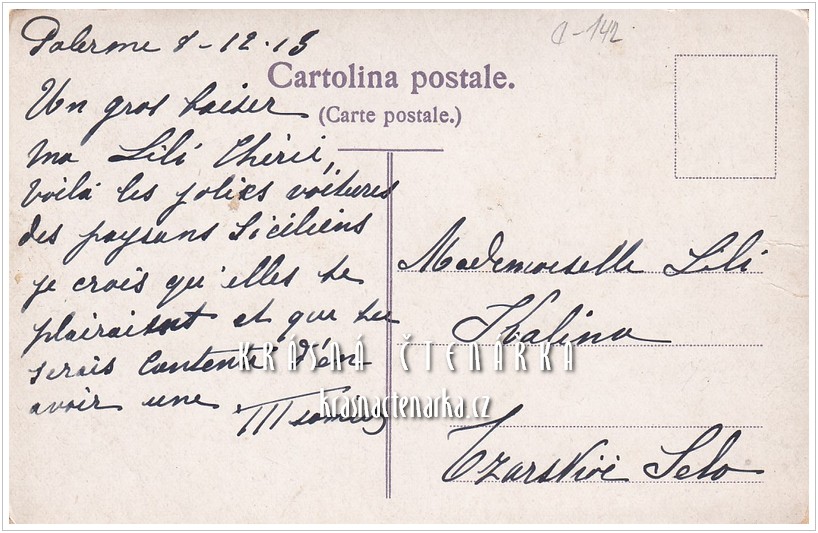 Palerme 8-12-13
a-142
Cartolina postale.
(Carte postale.)
Un gros baiser
ma Lili Chérie,
Voilà les jolies voitures
des paysans Siciliens
je crois qu'elles te
plairaient et que tu
serais contente d'en
avoir une
Mademoiselle Lili
Kalina
Tzarskoé Selo
KRÁSNÁ ČTENÁŘKA
krasnactenarka.cz